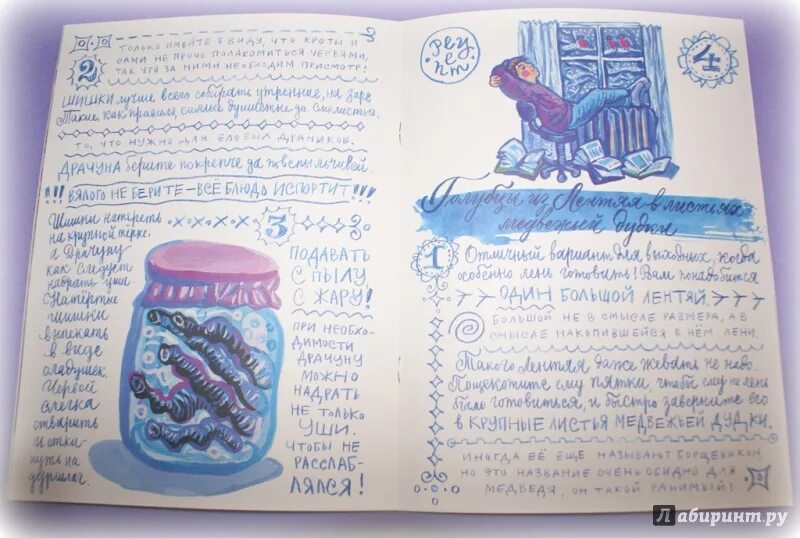 2
ТОЛЬКО ИМЕЙТЕ В ВИДУ, ЧТО КРОТЫ И
САМИ НЕ ПРОЧЬ ПОЛАКОМИТЬСЯ ЧЕРВЯМИ,
ТАК ЧТО ЗА НИМИ НЕОБХОДИМ ПРИСМОТР!
ШИШКИ лучше всего собирать утренние, на заре
Такие, как правило, самые душистые да смолистые.
ТО, ЧТО НУЖНО ДЛЯ ЕЛОВЫХ ДРАНИКОВ.
ДРАЧУНА берите покрепче да повспыльчивей.
!! ВЯЛОГО НЕ БЕРИТЕ – ВСЁ БЛЮДО ИСПОРТИТ !!!
Шишки натереть
на крупной тёрке,
а Драчуну
как следует
надрать уши
Натёртые
шишки
выпекать
в виде
оладушек.
Червей
слегка
отварить
и отки-
нуть на
дуршлаг.
3
ПОДАВАТЬ
С ПЫЛУ,
С ЖАРУ!
ПРИ НЕОБХО-
ДИМОСТИ
ДРАЧУНУ
МОЖНО
НАДРАТЬ
НЕ ТОЛЬКО
УШИ.
ЧТОБЫ НЕ
РАССЛАБ-
ЛЯЛСЯ!
Рец
е
пт
4
Голубцы из Лентяя в листьях
медвежьей дудки
1
Отличный вариант для выходных, когда
особенно лень готовить! Вам понадобится
ОДИН БОЛЬШОЙ ЛЕНТЯЙ.
БОЛЬШОЙ НЕ В СМЫСЛЕ РАЗМЕРА, А В
СМЫСЛЕ НАКОПИВШЕЙСЯ В НЁМ ЛЕНИ.
Такого Лентяя даже жевать не надо.
Пощекочите ему пятки, чтобы ему не лень
было готовиться, и быстро заверните его
в КРУПНЫЕ ЛИСТЬЯ МЕДВЕЖЬЕЙ ДУДКИ.
ИНОГДА ЕЁ ЕЩЁ НАЗЫВАЮТ БОРЩЕВИКОМ,
НО ЭТО НАЗВАНИЕ ОЧЕНЬ ОБИДНО ДЛЯ
МЕДВЕДЯ, ОН ТАКОЙ РАНИМЫЙ!
Лабиринт.ру